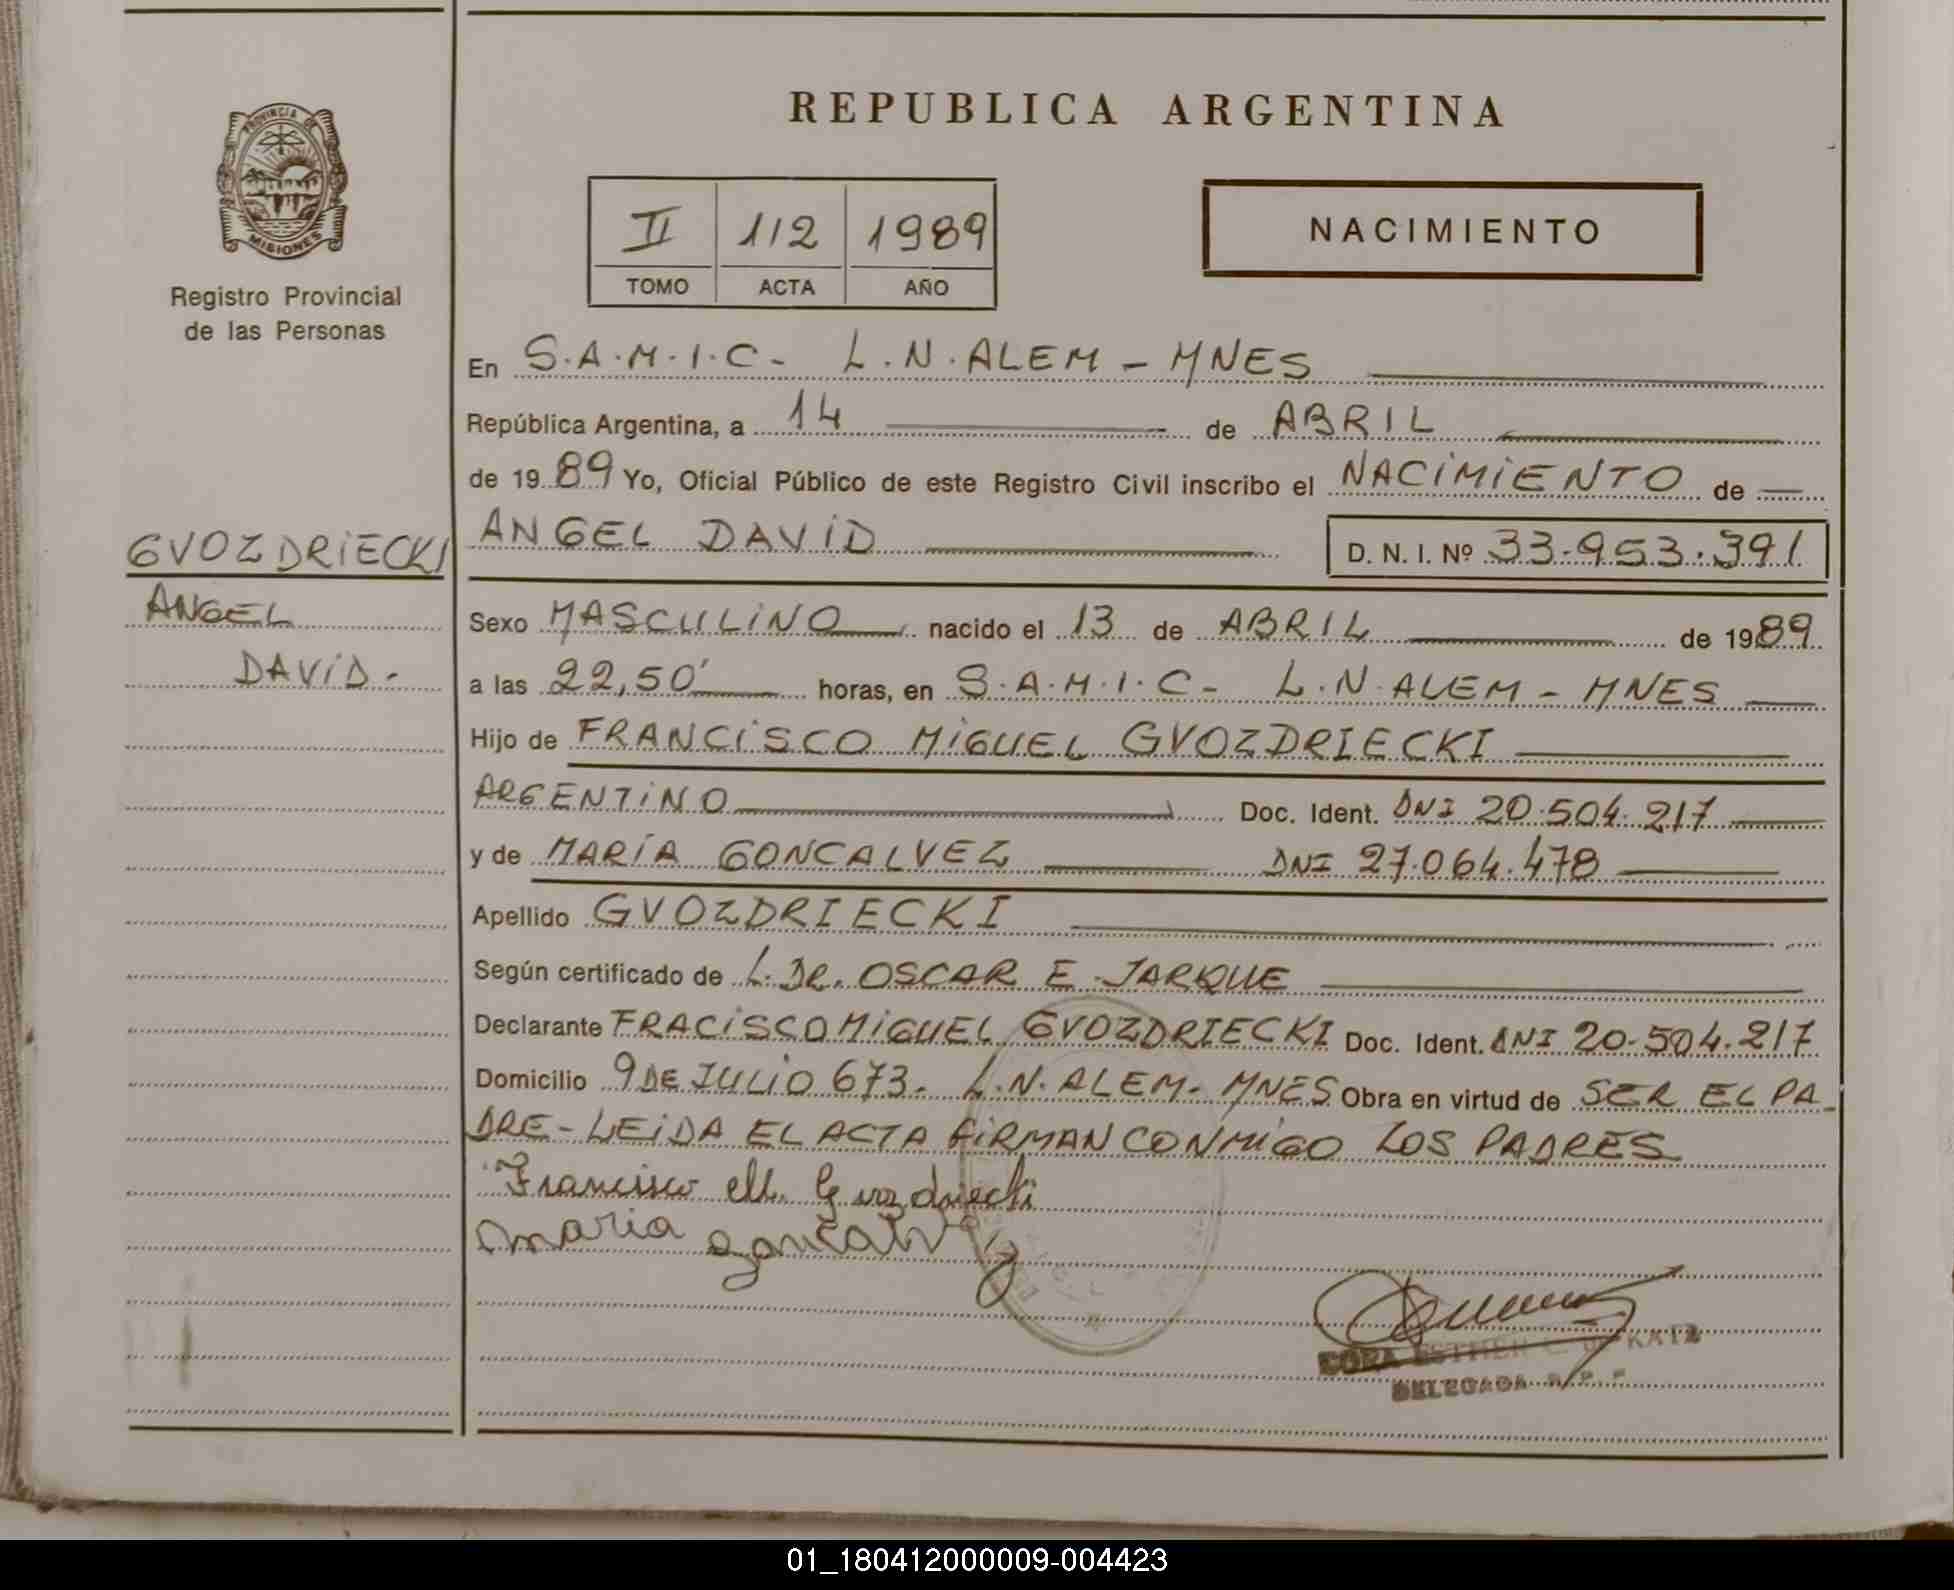 REPUBLICA ARGENTINA
PROVINCIA DE
MISIONES
Registro Provincial
de las Personas
II 112 1989
TOMO ACTA AÑO
NACIMIENTO
En S.A.M.I.C- L.N.ALEM - MNES
República Argentina, a 14 de ABRIL
de 1989 Yo, Oficial Público de este Registro Civil inscribo el NACIMIENTO de
GVOZDRIECKI
ANGEL
DAVID.-
ANGEL DAVID D. N. I. Nº 33.953.391
Sexo MASCULINO nacido el 13 de ABRIL de 1989
a las 22,50' horas, en S.A.M.I.C- L.N.ALEM - MNES
Hijo de FRANCISCO MIGUEL GVOZDRIECKI
ARGENTINO Doc. Ident. DNI 20.504.217
y de MARÍA GONCALVEZ DNI 27.064.478
Apellido GVOZDRIECKI
Según certificado de L. DR. OSCAR E. JARQUE
Declarante FRACISCO MIGUEL GVOZDRIECKI Doc. Ident. DNI 20.504.217
Domicilio 9 DE JULIO 673. L.N. ALEM- MNES Obra en virtud de SER EL PA-
DRE - LEIDA EL ACTA FIRMAN CONMIGO LOS PADRES
Francisco M. Gvozdriecki
maria goncalvez
CORA ESTHER C. de KATZ
DELEGADA R.P.
01_180412000009-004423